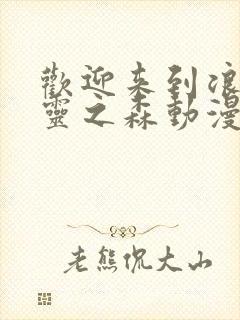 歡迎来到凉
靈之森動漫
老熊侃大山